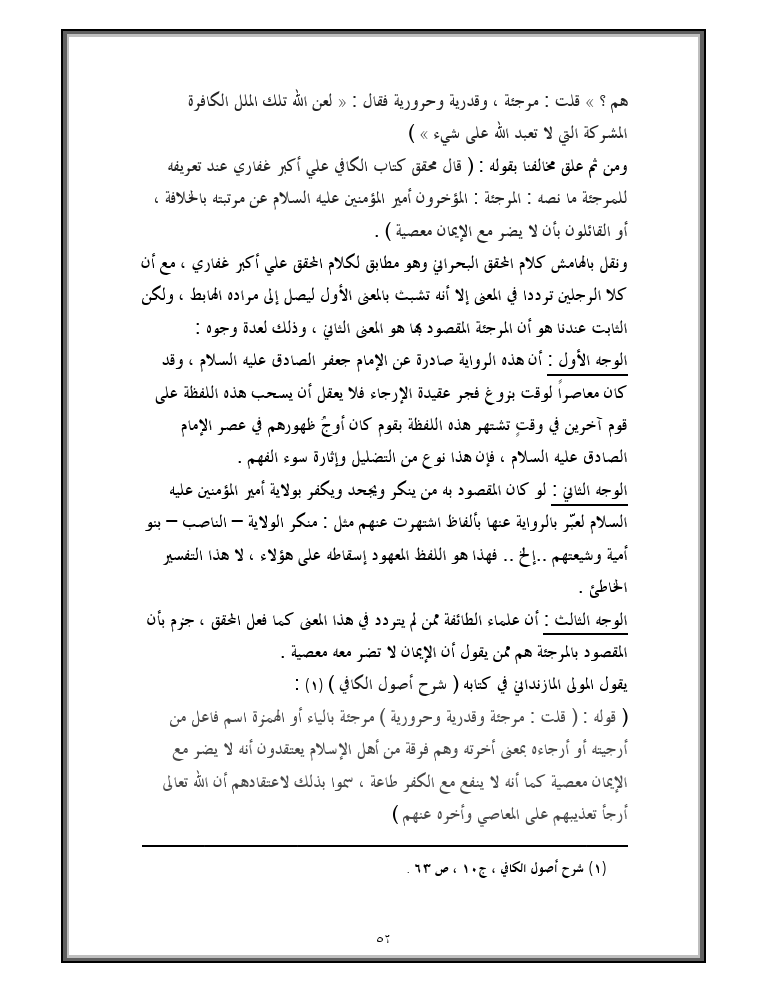 هم ؟ » قلت : مرجئة ، وقدرية وحرورية فقال : « لعن الله تلك الملل الكافرة
المشركة التي لا تعبد الله على شيء » )
ومن ثم علق مخالفنا بقوله : ( قال محقق كتاب الكافي علي أكبر غفاري عند تعريفه
للمرجئة ما نصه : المرجئة : المؤخرون أمير المؤمنين عليه السلام عن مرتبته بالخلافة ،
أو القائلون بأن لا يضر مع الإيمان معصية ) .
ونقل بالهامش كلام المحقق البحراني وهو مطابق لكلام المحقق علي أكبر غفاري ، مع أن
كلا الرجلين ترددا في المعنى إلا أنه تشبث بالمعنى الأول ليصل إلى مراده الهابط ، ولكن
الثابت عندنا هو أن المرجئة المقصود بها هو المعنى الثاني ، وذلك لعدة وجوه :
الوجه الأول : أن هذه الرواية صادرة عن الإمام جعفر الصادق عليه السلام ، وقد
كان معاصراً لوقت بزوغ فجر عقيدة الإرجاء فلا يعقل أن يسحب هذه اللفظة على
قوم آخرين في وقتٍ تشتهر هذه اللفظة بقوم كان أوجُ ظهورهم في عصر الإمام
الصادق عليه السلام ، فإن هذا نوع من التضليل وإثارة سوء الفهم .
الوجه الثاني : لو كان المقصود به من ينكر ويجحد ويكفر بولاية أمير المؤمنين عليه
السلام لعبّر بالرواية عنها بألفاظ اشتهرت عنهم مثل : منكر الولاية – الناصب – بنو
أمية وشيعتهم ..إلخ .. فهذا هو اللفظ المعهود إسقاطه على هؤلاء ، لا هذا التفسير
الخاطئ .
الوجه الثالث : أن علماء الطائفة ممن لم يتردد في هذا المعنى كما فعل المحقق ، جزم بأن
المقصود بالمرجئة هم ممن يقول أن الإيمان لا تضر معه معصية .
يقول المولى المازنداني في كتابه ( شرح أصول الكافي ) (١) :
( قوله : ( قلت : مرجئة وقدرية وحرورية ) مرجئة بالياء أو الهمزة اسم فاعل من
أرجيته أو أرجاءه بمعنى أخرته وهم فرقة من أهل الإسلام يعتقدون أنه لا يضر مع
الإيمان معصية كما أنه لا ينفع مع الكفر طاعة ، سموا بذلك لاعتقادهم أن الله تعالى
أرجأ تعذيبهم على المعاصي وأخره عنهم )
(١) شرح أصول الكافي ، ج١٠ ، ص ٦٣ .
٥٢